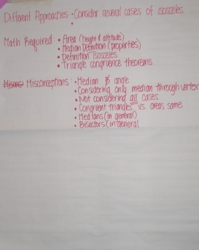 Different Approaches - Consider several cases of isosceles
Math Required • Area (height & altitudes)
• Median Definition (properties)
• Definition isosceles
• Triangle congruence theorems
Misconceptions • Median & angle
• Considering only median through vertex
• Not considering all cases
• Congruent triangles vs areas same
• Medians (in general)
• Bisectors (in general)